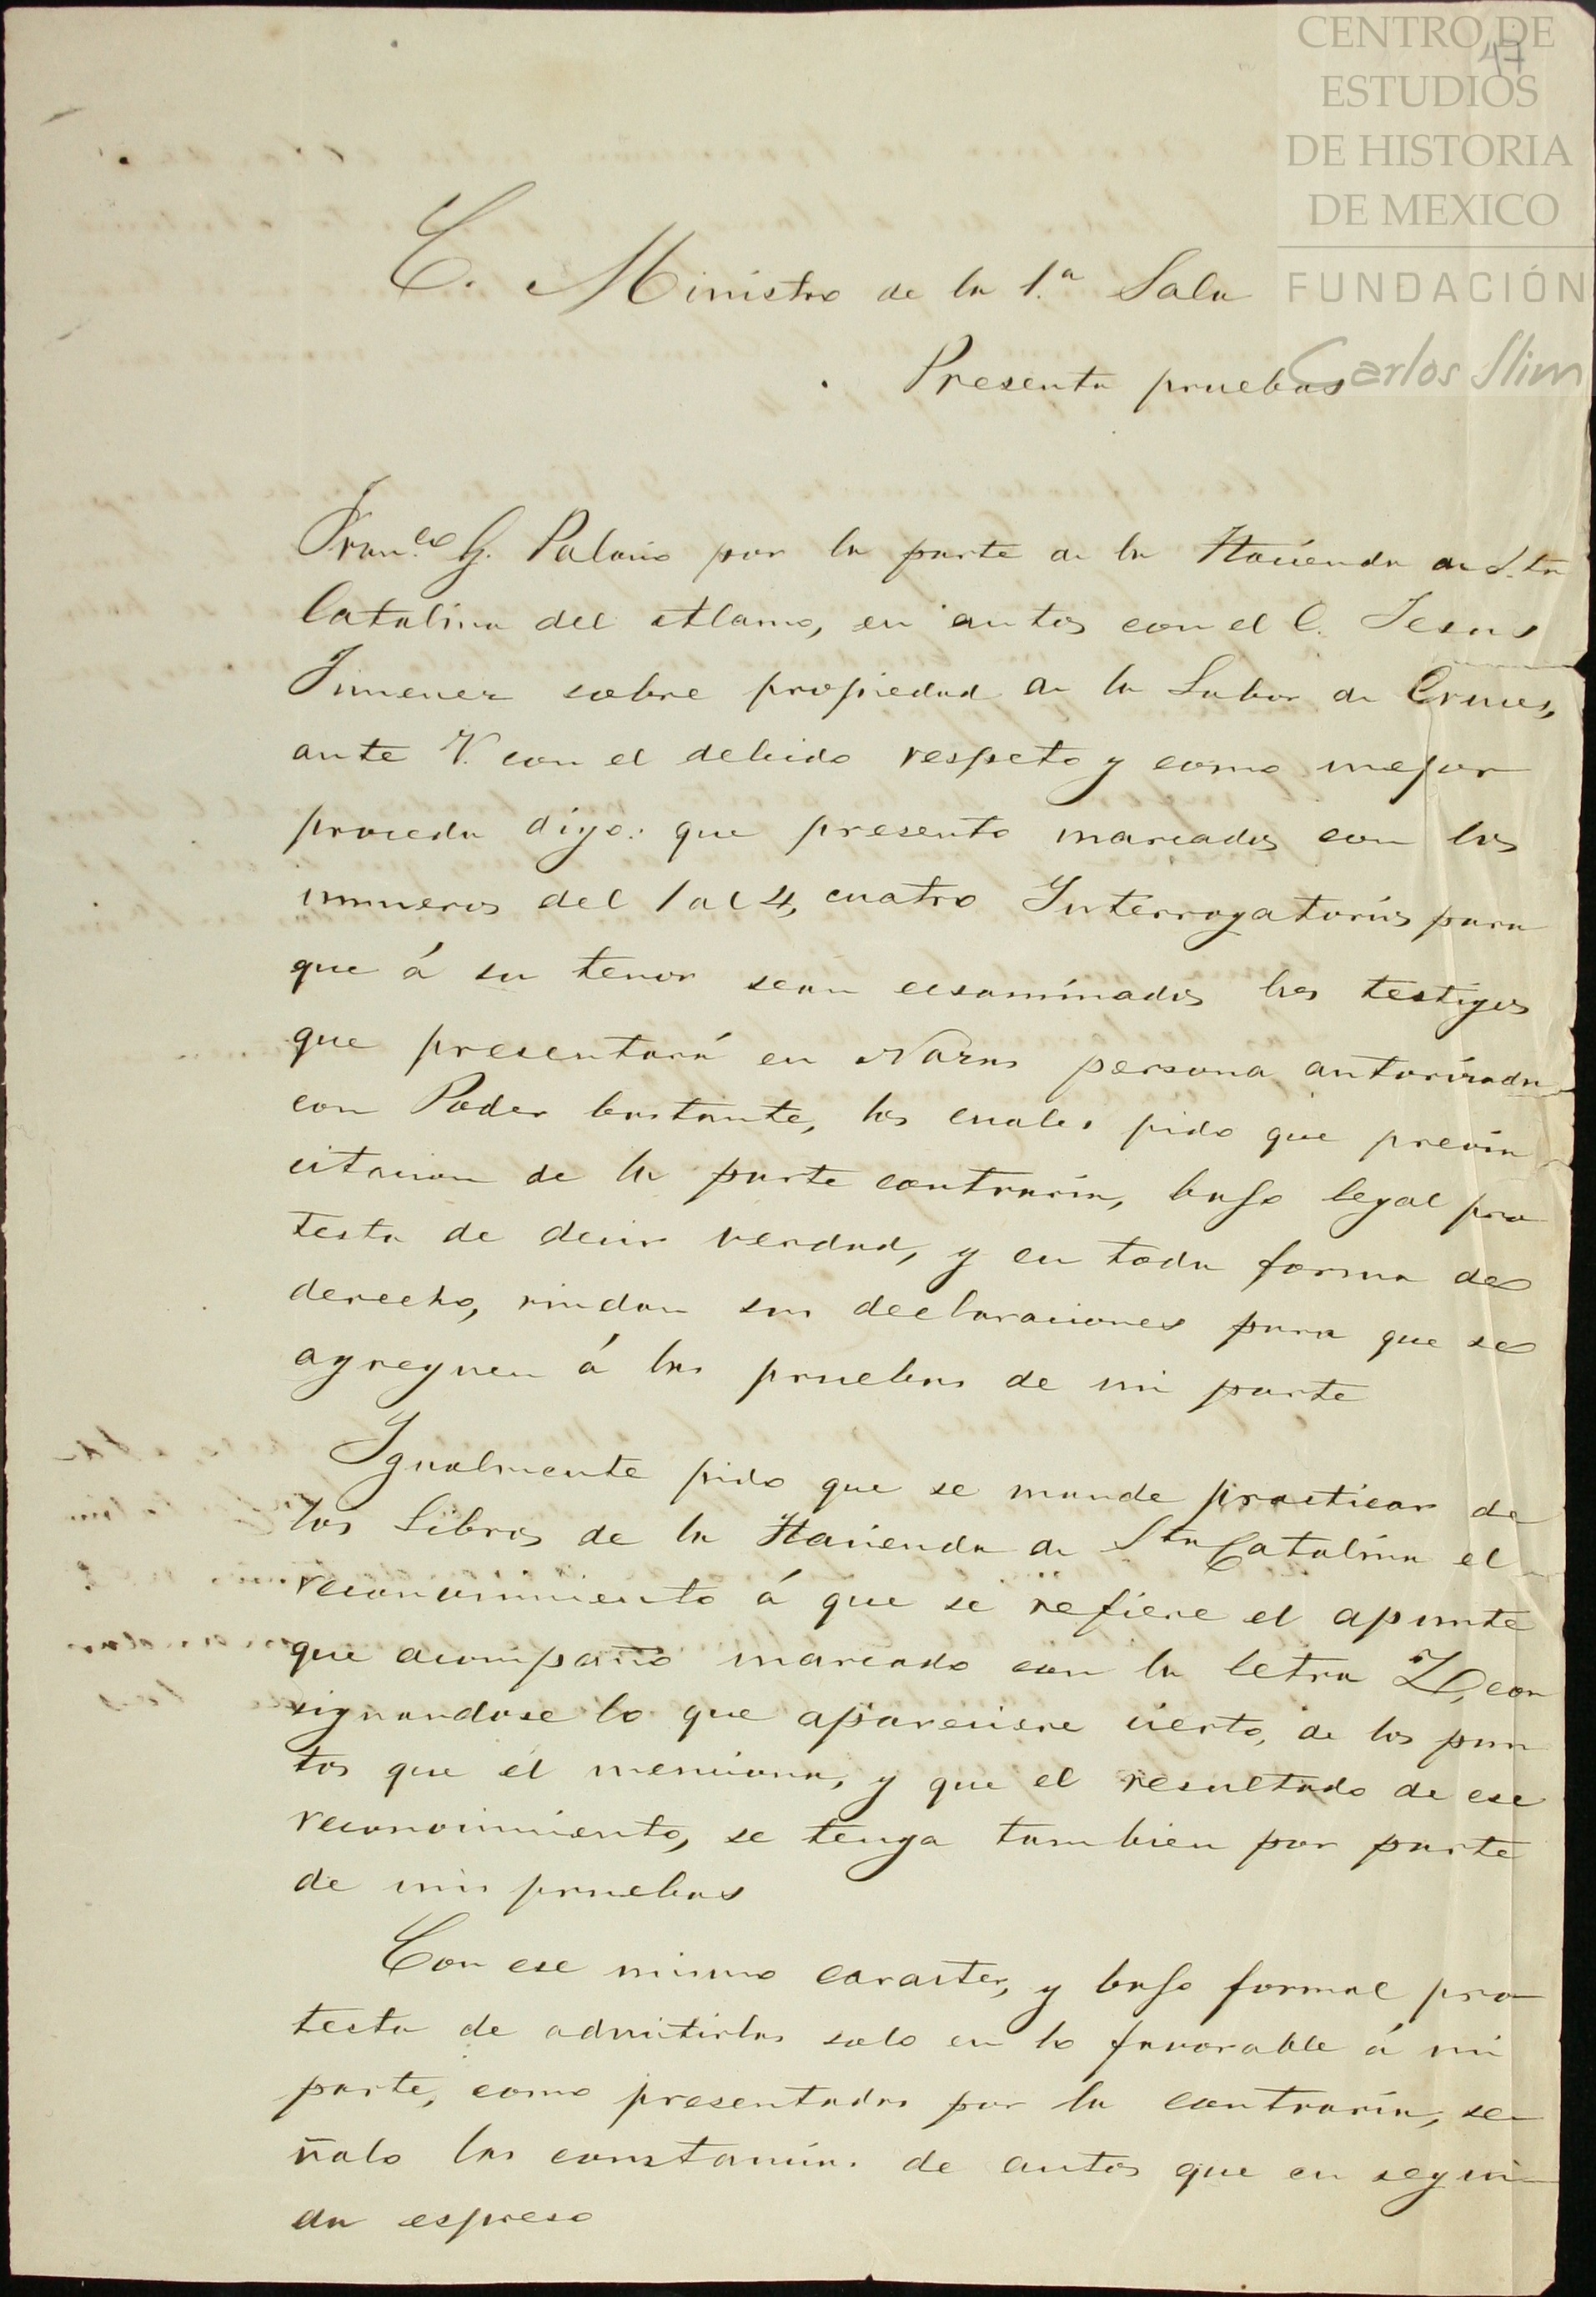 CENTRO DE
ESTUDIOS
DE HISTORIA
DE MEXICO
FUNDACIÓN
Carlos Slim
47
C. Ministro de la 1.a Sala
Presenta pruebas
Fran.co G. Palacio por la parte de la Hacienda de S.ta
Catalina del Alamo, en autos con el C. Jesus
Jimenez sobre propiedad de la Labor de Cruces,
ante V. con el debido respeto y como mejor
proceda digo: que presento marcados con los
numeros del 1 al 4, cuatro Interrogatorios para
que á su tenor sean ecsaminados los testigos
que presentará en Nazas persona autorizada
con Poder bastante, los cuales pido que previa
citacion de la parte contraria, bajo legal pro
testa de decir verdad, y en toda forma de
derecho, rindan sus declaraciones para que se
agreguen á las pruebas de mi parte
Igualmente pido que se mande practicar de
los Libros de la Hacienda de Sta Catalina el
reconocimiento á que se refiere el apunte
que acompaño marcado con la letra D, con
signandose lo que apareciere cierto, de los pun
tos que él menciona, y que el resultado de ese
reconocimiento, se tenga tambien por parte
de mis pruebas
Con ese mismo caracter, y bajo formal pro
testa de admitirlas solo en lo favorable á mi
parte, como presentadas por la contraria, se
ñalo las constancias de autos que en segui
da espreso